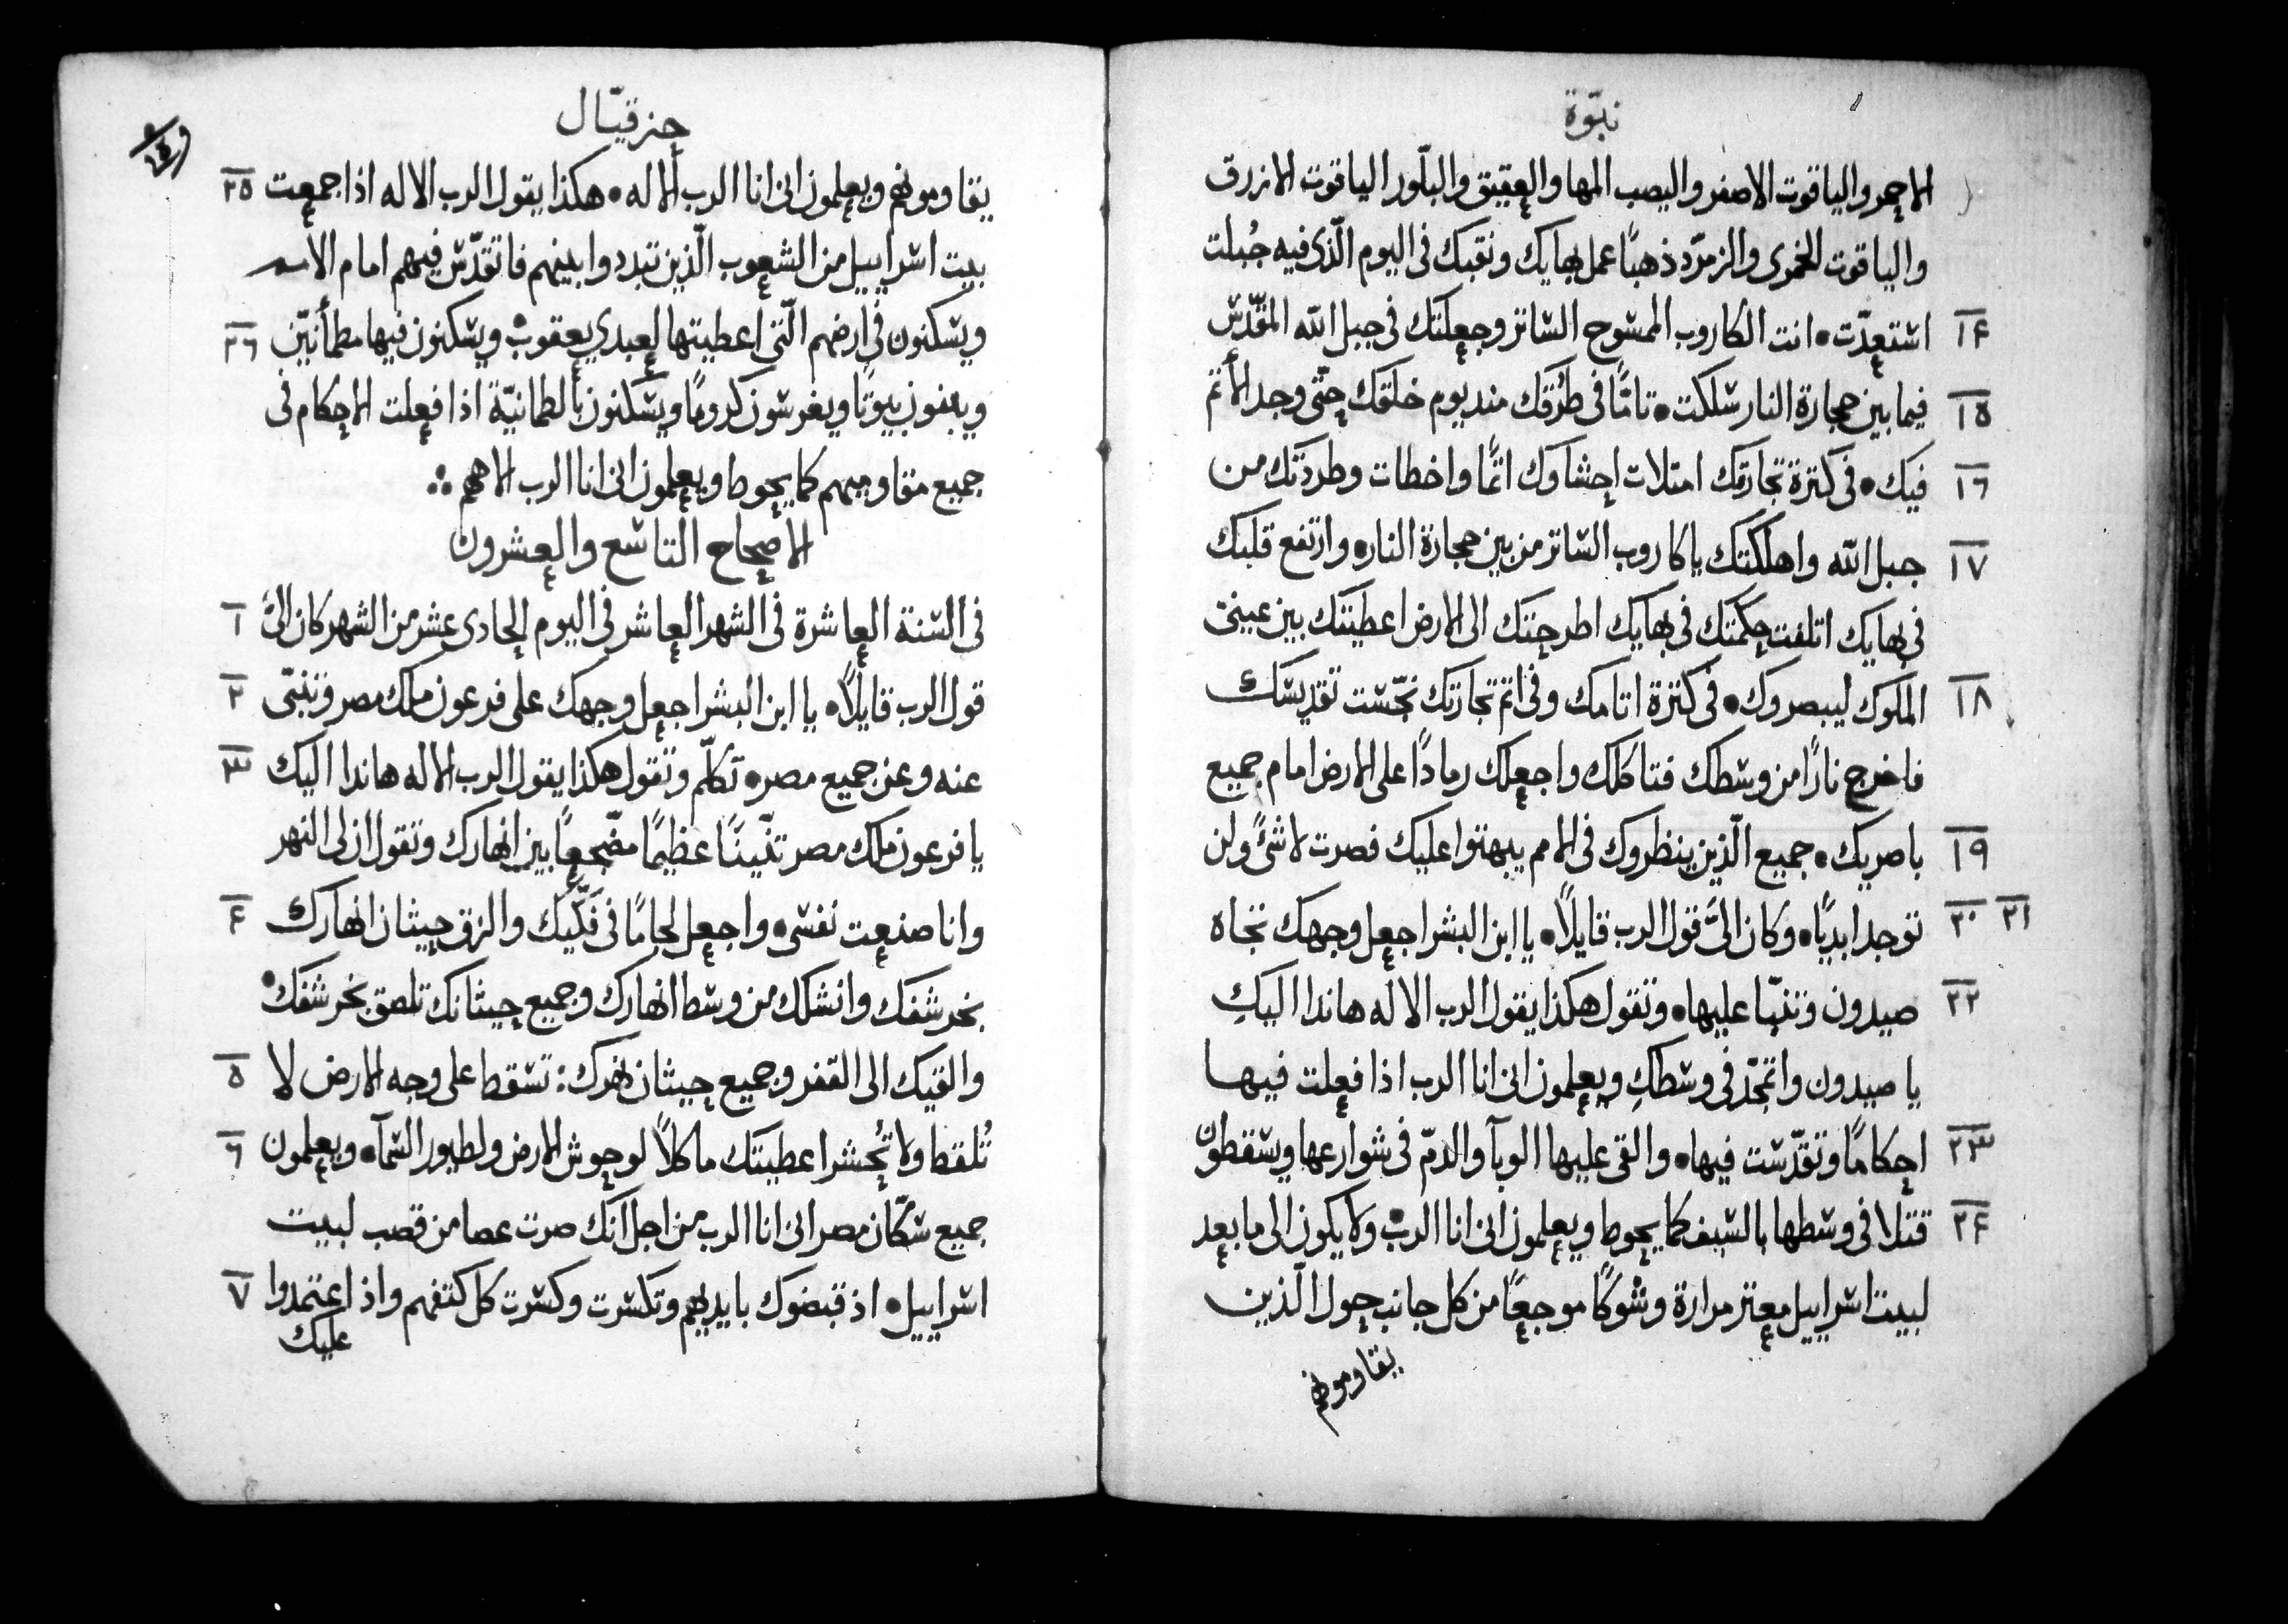 نبوّة
الاحمر والياقوت الاصفر واليصب المها والعقيق والبلّور الياقوت الازرق
والياقوت الخمرى والزمرّد ذهبًا عمل بهايك ونقبك فى اليوم الّذى فيه جُبلت
١٤ استعدّت • انت الكاروب الممسوح الساتر وجعلتك فى جبل الله المقدّس
١٥ فيما بين حجارة النار سلكت • تامًّا فى طرُقك منذ يوم خلقك حتّى وجد الأثم
١٦ فيك • فى كثرة تجارتك امتلات احشاوك اثمًا واخطات وطردتك من
١٧ جبل الله واهلكتك ياكاروب الساتر من بين حجارة النار • وارتفع قلبك
فى بهايك اتلفت حكمتك فى بهايك اطرحتك الى الارض اعطيتك بين عينى
١٨ الملوك ليبصروك • فى كثرة اثامك وفى اثم تجارتك نجّست تقديسك
فاخرج نارًا من وسطك فتاكلك واجعلك رمادًا على الارض امام جميع
١٩ باصريك • جميع الّذين ينظروك فى الامم يبهتوا عليك فصرت لاشئً ولن
٢٠ ٢١ توجد ابديًا • وكان الىَّ قول الرب قايلًا • يا ابن البشر اجعل وجهك تجاه
٢٢ صيدون وتنبّا عليها • وتقول هكذا يقول الرب الاله هاندا اليكِ
يا صيدون واتمجّد فى وسطكِ ويعلمون انى انا الرب اذا فعلت فيها
٢٣ احكامًا وتقدّست فيها • والقى عليها الوبآ والدمّ فى شوارعها ويسقطون
٢٤ قتلا فى وسطها بالسيف كما يحوط ويعلمون انى انا الرب • ولا يكون الى ما بعد
لبيت اسراييل معثر مرارة وشوكًا موجعًا من كل جانب حول الّذين
يقاومونهم
حزقيّال
٢٥ يقاومونهم ويعلمون انى انا الرب الاله • هكذا يقول الرب الاله اذا جمعت
بيت اسراييل من الشعوب الّذين تبددوا بينهم فاتقدّس فيهم امام الامم
٢٦ ويسكنون فى ارضهم الّتى اعطيتها لعبدي يعقوب • ويسكنون فيها مطمأنيّن
ويبنون بيوتًا ويغرسون كرومًا ويسكنون بالطمانيّة اذا فعلت الاحكام فى
جميع مقاوميهم كما يحوط ويعلمون انى انا الرب الاههم
الاصحاح التاسع والعشرون
١ فى السّنة العاشرة فى الشهر العاشر فى اليوم الحادى عشر من الشهر كان الىَّ
٢ قول الرب قايلًا • يا ابن البشر اجعل وجهك على فرعون ملك مصر وتنبّى
٣ عنه وعن جميع مصر • تكلّم وتقول هكذا يقول الرب الاله هاندا اليك
يا فرعون ملك مصر تنّينًا عظيمًا مضّجعًا بين انهارك وتقول ان لى النهر
٤ وانا صنعت نفسى • واجعل لجامًا فى فكّيك والزق حيثان انهارك
بخرشفك وانشلك من وسط انهارك وجميع حيثانك تلصق بخرشفك •
٥ والقيك الى القفر وجميع حيثان نهرك : تسقط على وجه الارض لا
٦ تُلقط ولا تُحشر اعطيتك ماكلاً لوحوش الارض ولطيور السّمآ • ويعلمون
جميع سّكّان مصر انى انا الرب من اجل انّك صرت عصا من قصب لبيت
٧ اسراييل • اذ قبضوك بايديهم وتكسّرت وكسّرت كل كتفهم واذ اعتمدوا
عليك